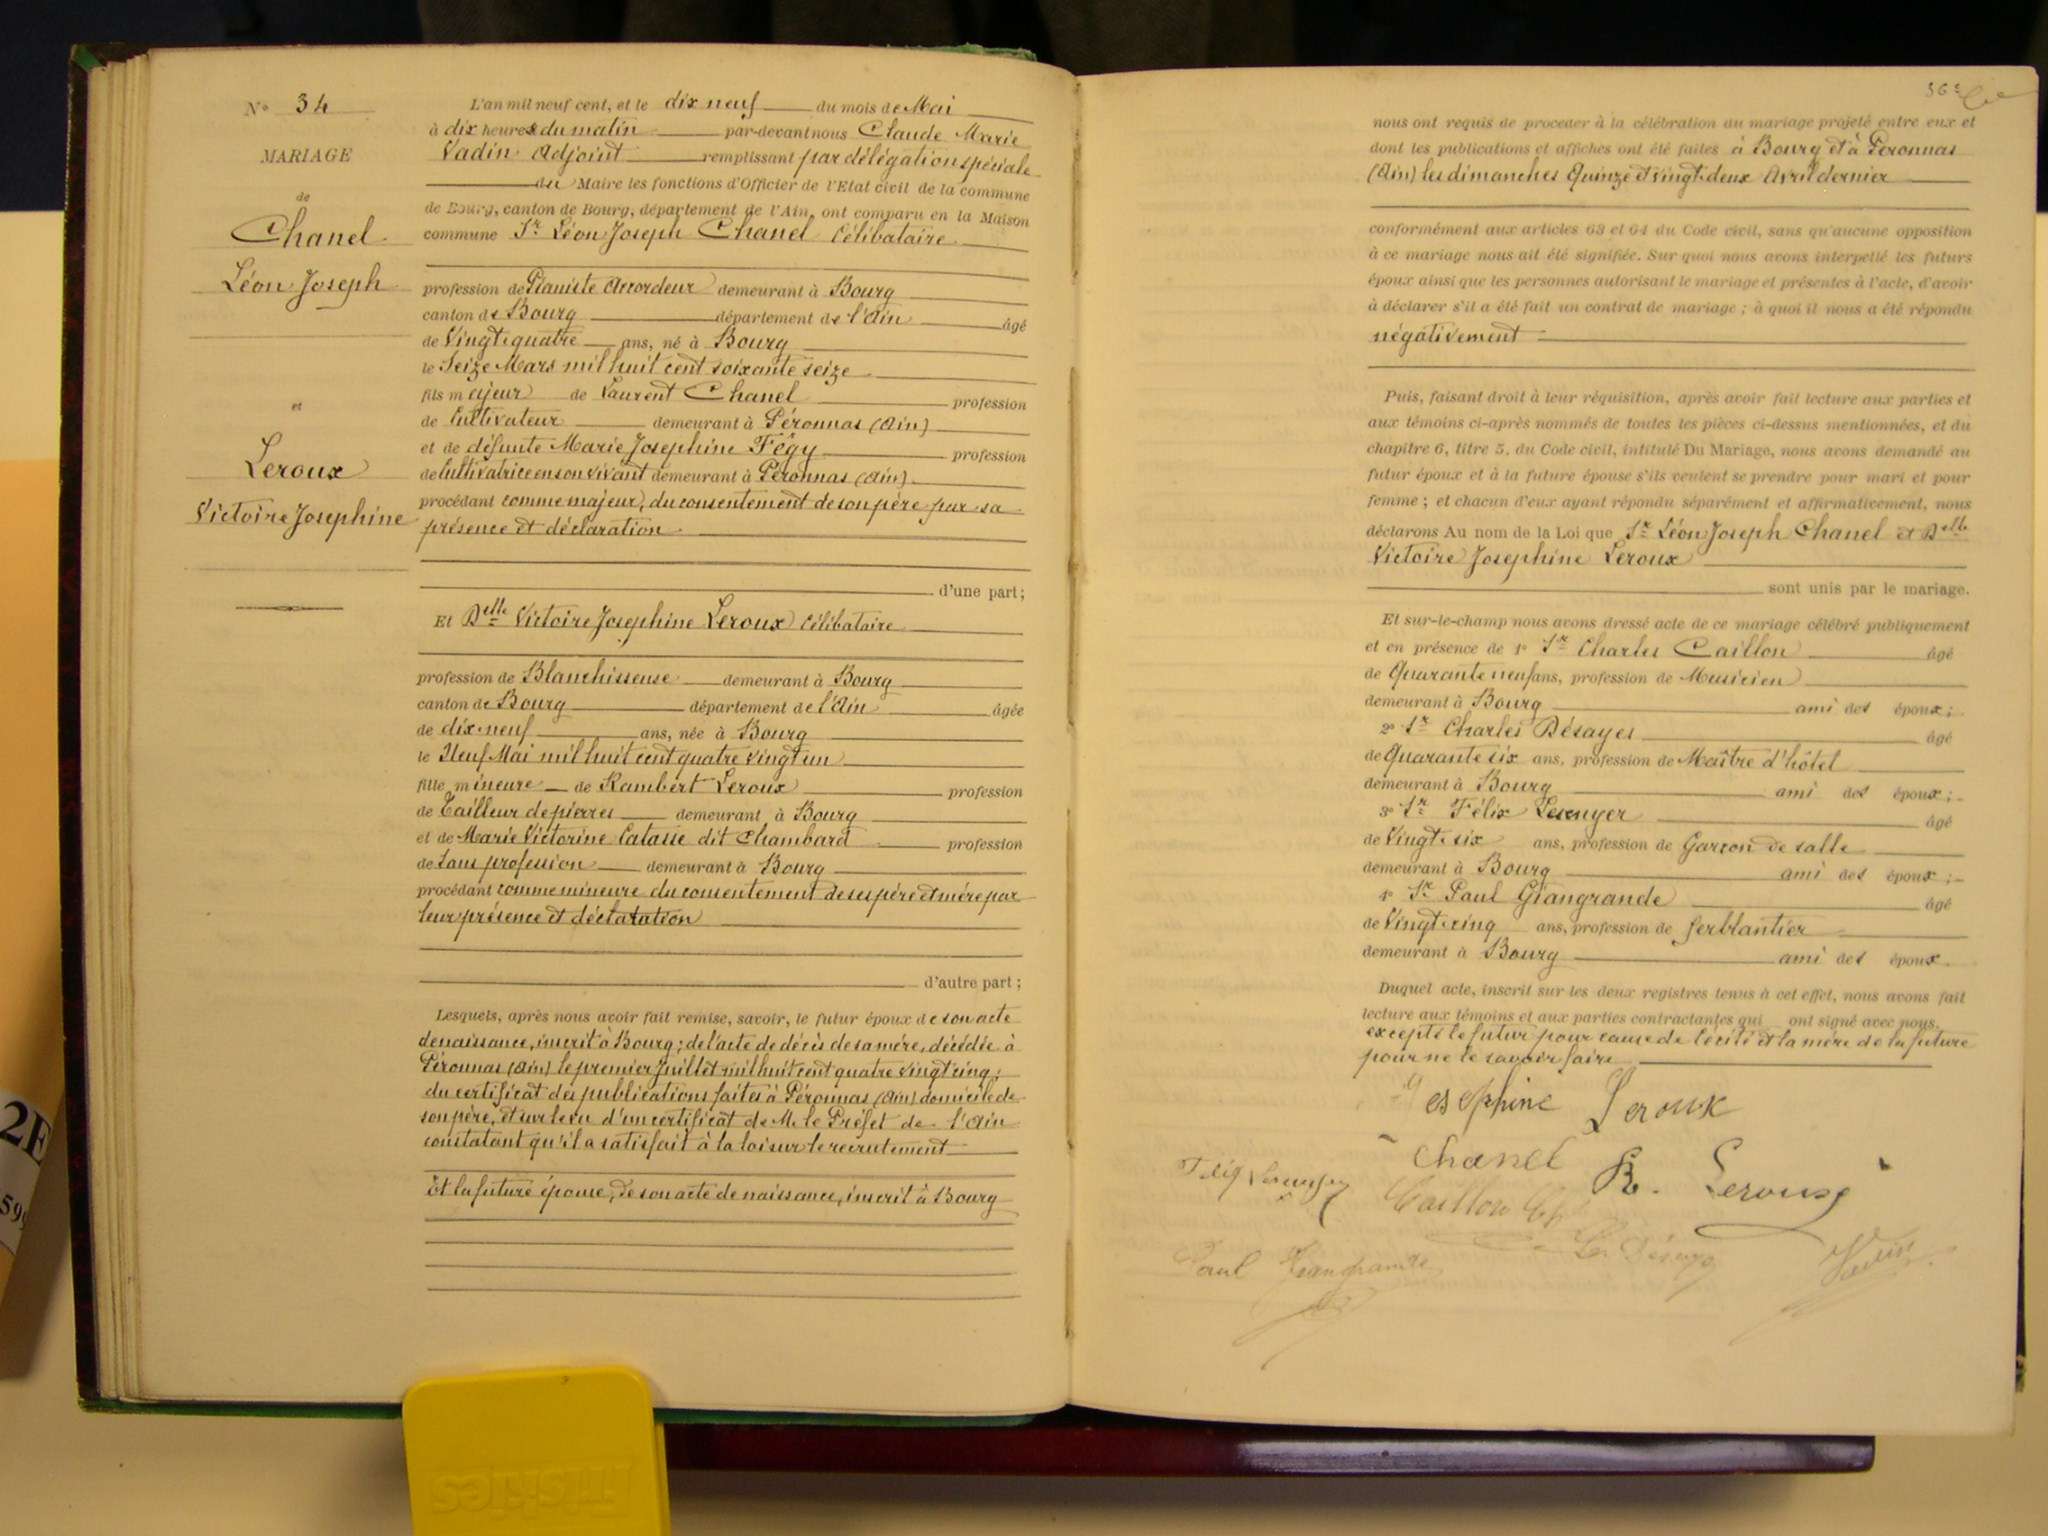 N° 34
MARIAGE
de
Chanel
Léon Joseph
et
Leroux
Victoire Josephine
L'an mil neuf cent, et le dix neuf du mois de Mai
à dix heures du matin par-devant nous Claude Marie
Vadin Adjoint remplissant par délégation spéciale
du Maire les fonctions d'Officier de l'Etat civil de la commune
de Bourg, canton de Bourg, département de l'Ain, ont comparu en la Maison
commune Sr Léon Joseph Chanel Célibataire
profession de Pianiste Accordeur demeurant à Bourg
canton de Bourg département de l'Ain âgé
de Vingt quatre ans, né à Bourg
le Seize Mars mil huit cent soixante seize
fils majeur de Laurent Chanel profession
de Cultivateur demeurant à Péronnas (Ain)
et de défunte Marie Josephine Fégy profession
de Cultivatrice en son vivant demeurant à Péronnas (Ain)
procédant comme majeur, du consentement de son père par sa
présence et déclaration
d'une part;
Et Delle Victoire Josephine Leroux Célibataire
profession de Blanchisseuse demeurant à Bourg
canton de Bourg département de l'Ain âgée
de dix neuf ans, née à Bourg
le Neuf Mai mil huit cent quatre vingt un
fille mineure de Rambert Leroux profession
de Tailleur de pierres demeurant à Bourg
et de Marie Victorine Catasse dit Chambard profession
de Sans profession demeurant à Bourg
procédant comme mineure du consentement de ses père et mère par
leur présence et déclaration
d'autre part;
Lesquels, après nous avoir fait remise, savoir, le futur époux de son acte
de naissance, inscrit à Bourg; de l'acte de décès de sa mère, décédée à
Péronnas (Ain) le premier Juillet mil huit cent quatre vingt cinq;
du certificat des publications faites à Péronnas (Ain) domicile de
son père, et sur le vu d'un certificat de M. le Préfet de l'Ain
constatant qu'il a satisfait à la loi sur le recrutement
Et la future épouse, de son acte de naissance, inscrit à Bourg
36e
nous ont requis de procéder à la célébration du mariage projeté entre eux et
dont les publications et affiches ont été faites à Bourg et à Péronnas
(Ain) les dimanches Quinze et vingt deux Avril dernier
conformément aux articles 63 et 64 du Code civil, sans qu'aucune opposition
à ce mariage nous ait été signifiée. Sur quoi nous avons interpellé les futurs
époux ainsi que les personnes autorisant le mariage et présentes à l'acte, d'avoir
à déclarer s'il a été fait un contrat de mariage; à quoi il nous a été répondu
négativement
Puis, faisant droit à leur réquisition, après avoir fait lecture aux parties et
aux témoins ci-après nommés de toutes les pièces ci-dessus mentionnées, et du
chapitre 6, titre 5, du Code civil, intitulé Du Mariage, nous avons demandé au
futur époux et à la future épouse s'ils veulent se prendre pour mari et pour
femme; et chacun d'eux ayant répondu séparément et affirmativement, nous
déclarons Au nom de la Loi que Sr Léon Joseph Chanel et Delle
Victoire Josephine Leroux
sont unis par le mariage.
Et sur-le-champ nous avons dressé acte de ce mariage célébré publiquement
et en présence de 1° Sr Charles Caillon âgé
de Quarante neuf ans, profession de Musicien
demeurant à Bourg ami des époux;
2° Sr Charles Désayes âgé
de Quarante six ans, profession de Maître d'hôtel
demeurant à Bourg ami des époux;
3° Sr Félix Lesuyer âgé
de Vingt six ans, profession de Garçon de salle
demeurant à Bourg ami des époux;
4° Sr Paul Giangrande âgé
de Vingt cinq ans, profession de ferblantier
demeurant à Bourg ami des époux
Duquel acte, inscrit sur les deux registres tenus à cet effet, nous avons fait
lecture aux témoins et aux parties contractantes qui ont signé avec nous,
excepté le futur pour cause de cécité et la mère de la future
pour ne le savoir faire
Josephine Leroux
Chanel R. Leroux
Caillon Ch
Ch Désayes
Paul Giangrande Vadin
2E